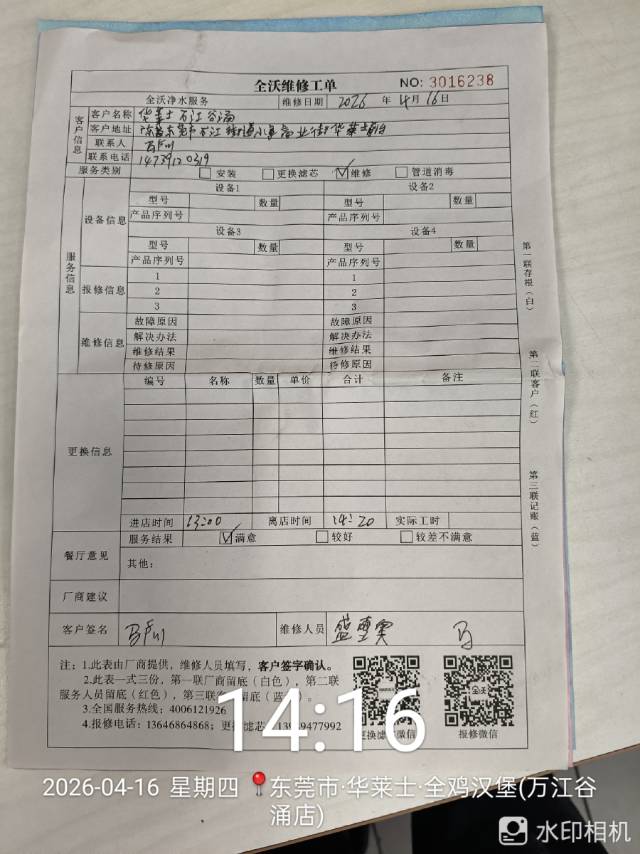 全沃维修工单
NO: 3016238
全沃净水服务 维修日期 2026 年 4 月 16 日
客户信息
客户名称 华莱士万江谷涌
客户地址
联系人
联系电话 14739120319
服务类别 安装 更换滤芯 维修 管道消毒
服务信息
设备信息
设备1 设备2
型号 数量 型号 数量
产品序列号 产品序列号
设备3 设备4
型号 数量 型号 数量
产品序列号 产品序列号
报修信息
1 1
2 2
3 3
维修信息
故障原因 故障原因
解决办法 解决办法
维修结果 维修结果
待修原因 待修原因
更换信息
编号 名称 数量 单价 合计 备注
进店时间 13:00 离店时间 14:20 实际工时
餐厅意见
服务结果 满意 较好 较差不满意
其他:
厂商建议
客户签名 维修人员
注: 1.此表由厂商提供, 维修人员填写, 客户签字确认。
2.此表一式三份, 第一联厂商留底(白色), 第二联
服务人员留底(红色), 第三联客 留底(蓝
3.全国服务热线: 4006121926
4.报修电话: 13646864868; 更换滤芯
更换滤 微信 报修微信
第一联存根(白)
第二联客户(红)
第三联记账(蓝)
14:16
2026-04-16 星期四 东莞市·华莱士·全鸡汉堡(万江谷
涌店)
水印相机